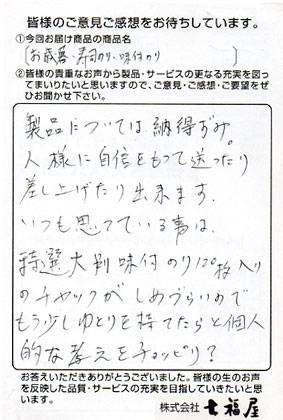 皆様のご意見ご感想をお待ちしています。
①今回お届け商品の商品名
(お歳暮・寿司のり・味付のり)
②皆様の貴重なお声から製品・サービスの更なる充実を図っ
てまいりたいと思いますので、ご意見・ご感想・ご要望をぜ
ひお聞かせ下さい。
製品については納得ずみ。
人様に自信をもって送ったり
差し上げたり出来ます。
いつも思っている事は、
特選大判味付のり120枚入り
のチャックがしめづらいので
もう少しゆとりを持てたらと個人
的な考えをチョッピリ?
お答えいただきありがとうございました。皆様の生のお声
を反映した品質・サービスの充実を目指していきたいと思い
ます。
株式会社 七福屋